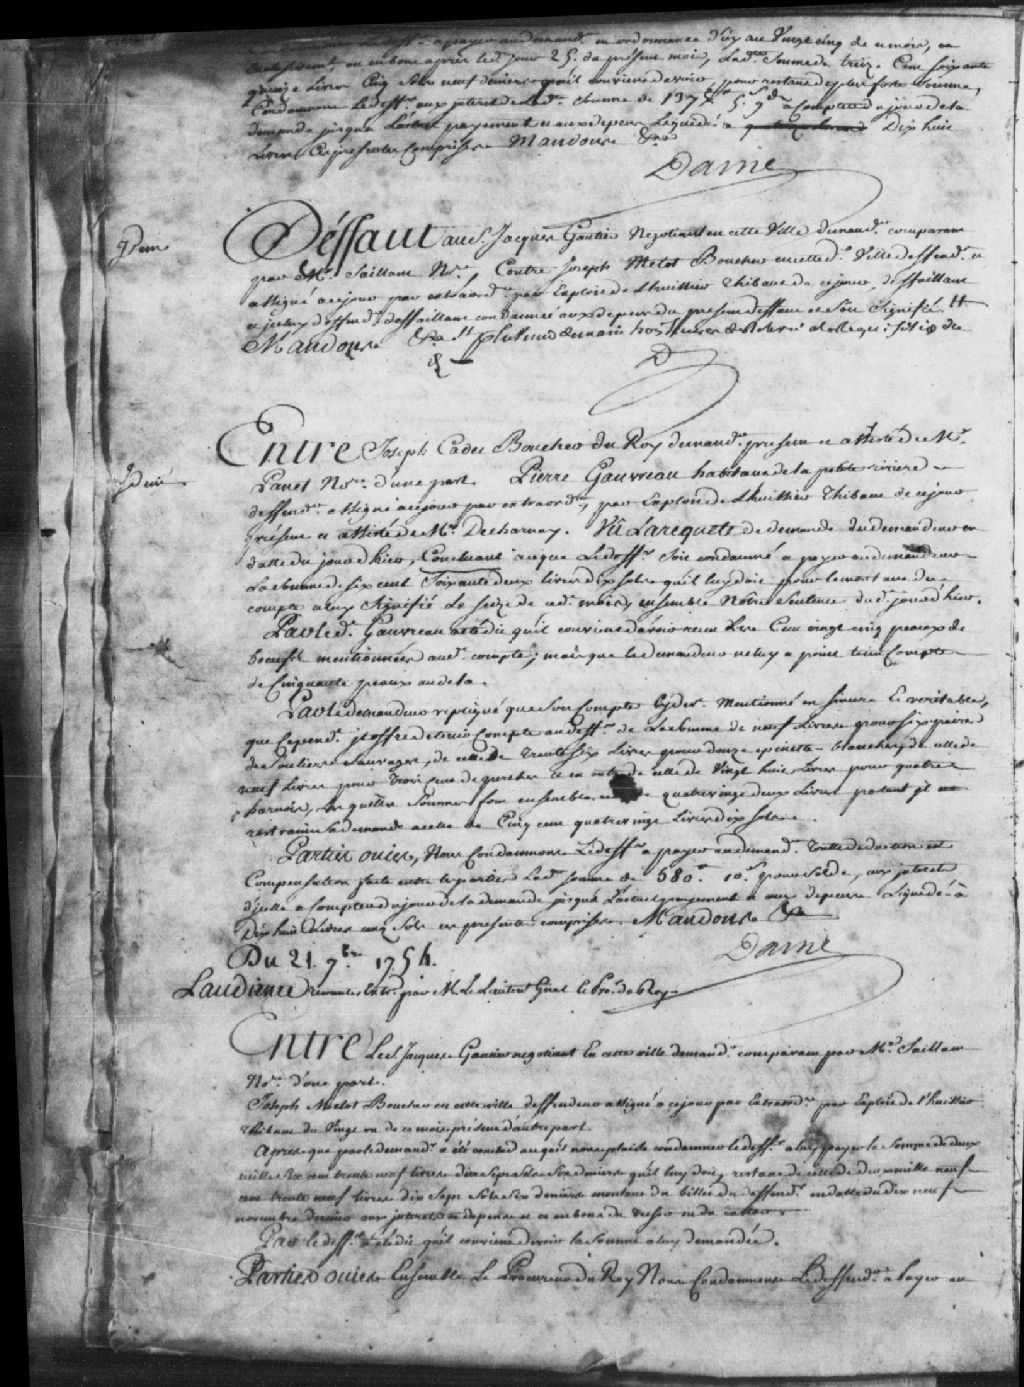 a payer au demand.r en ordonnance d'icy au Vingt cinq de ce mois, en
ou en bons apres led. jour 25. du présent mois, Lad.e Somme de treize Cent soixante
quinze Livres Cinq Sols neuf deniers qu'il convient devoir, pour restant de plus forte Somme,
Condamnons Le deff.r aux interets de Lad. Somme de 1375.# 5.s 9.d a Compter du jour de la
demande jusqu'a L'actuel payement et aux depens Liquidés a Dix huit
Livres Ces présentes Comprises Mandons &a
Daine
Déffaut au S. Jacques Gautier Négotiant en cette Ville demand.r comparant
par M.e Saillant N.re, Contre Joseph Metot Boucher en cette d. Ville deffend.r
assigné a ce jour par extraord.re par Exploit de L'huissier Thibault de ce jour, deffaillant
et pour le d. deffend.r deffaillant condamné aux depens du present deffaut et Soit Signifié
Mandons &a
D
Entre Joseph Cadet Boucher du Roy demand.r présent et assisté de M.e
Panet N.re d'une part. Pierre Gauvreau habitant de la petite riviere
deffend.r assigné a ce jour par extraord.re, par Exploit de L'huissier Thibault de ce jour
présent et assisté de M.e Decharnay. Vû La requete de demande du demandeur en
datte du jour d'hier, Concluant a ce que Le deff.r Soit condamné a payer au demandeur
La Somme de six cent Soixante deux livres dix sols qu'il luy doit pour le montant du
compte a luy Signifié Le Seize de ced. mois, ensemble Notre Sentence dud. jour d'hier.
Par led. Gauvreau a été dit qu'il convient d'avoir reçu Les Cent vingt cinq peaux de
boeufs mentionnées aud. compte; mais que le demandeur ne luy a point tenu Compte
de Cinquante peaux au dela.
Par le demandeur repliqué que Son Compte cy des.s Mentionné en Sincere et veritable,
que Cepend.t il offre de tenir Compte au deff.r de La Somme de neuf Livres pour six paires
de Souliers Sauvages, de celle de trente six Livres pour douze epinettes blanches, de celle de
neuf Livres pour trois Cent de perches et en outre de celle de Vingt huit Livres pour quatre
harnois, Les quelles Sommes font ensemble celle de quatre vingt deux Livres partant il
restraint Sa demande a celle de Cinq cent quatre vingt Livres dix Sols.
Parties ouies, Nous Condamnons Le deff.r a payer au demand.r toutte deduction et
Compensation faite entre les parties Lad. Somme de 580.# 10.s pour Solde, aux interets
d'icelle a Compter du jour de la demande jusqu'a L'actuel payement et aux depens Liquidés a
Dix huit Livres cinq Sols ces presentes comprises. Mandons &a
Daine
Du 21. 7.bre 1754.
L'audiance tenue par M. Le Lieutent Gnal le Pro. du Roy
Entre Le S. Jacques Gautier negotiant En cette ville demand.r comparant par M.e Saillant
N.re d'une part.
Joseph Metot Boucher en cette ville deffendeur assigné a ce jour par Extraord.re par Exploit de l'huissier
Thibault du Vingt un de ce mois présent d'autre part.
Apres que par le demand.r a été conclud a ce qu'il nous plaise condamner le deff.r a luy payer la Somme de deux
mille Six cent trente neuf Livres dix Sept Sols Six deniers qu'il luy doit, restant de celle de deux mille neuf
cent trente neuf Livres dix Sept Sols Six deniers montant du billet du deffend.r en datte du dix neuf
novembre dernier aux interets et depens
Par le deff.r a été dit qu'il convient devoir la Somme a luy demandée.
Parties ouies Ensemble Le Procureur du Roy Nous Condamnons Le deffend.r a payer au